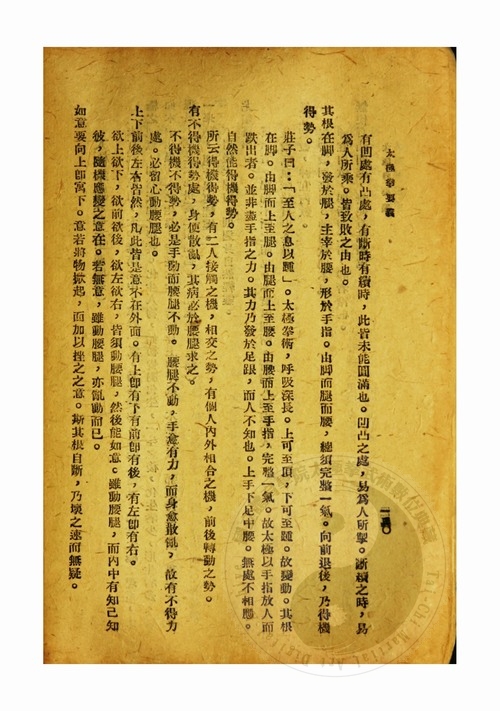 太極拳要義
有凹處有凸處，有斷時有續時，此皆未能圓滿也。凹凸之處，易爲人所擊。斷續之時，易
爲人所乘。皆致敗之由也。
其根在脚，發於腿，主宰於腰，形於手指。由脚而腿而腰，總須完整一氣。向前退後，乃得機
得勢。
莊子曰：「至人之息以踵」。太極拳術，呼吸深長。上可至頂，下可至踵。故變動。其根
在脚。由脚而上至腿。由腿而上至腰。由腰而上至手指，完整一氣。故太極以手指放人而
跌出者。並非盡手指之力。其力乃發於足跟，而人不知也。上手下足中腰。無處不相應。
自然能得機得勢。
所云得機得勢，有二人接觸之機，相交之勢，有個人內外相合之機，前後轉動之勢。
有不得機得勢處，身便散亂，其病必於腰腿求之。
不得機不得勢，必是手動而腰腿不動。腰腿不動，手愈有力，而身愈散亂，故有不得力
處。必留心動腰腿也。
上下前後左右皆然，凡此皆是意不在外面。有上卽有下有前卽有後，有左卽有右。
欲上欲下，欲前欲後，欲左欲右，皆須動腰腿，然後能如意。雖動腰腿，而內中有知己知
彼，隨機應變之意在。若無意，雖動腰腿，亦亂動而已。
如意要向上卽寓下。意若將物掀起，而加以挫之之意。斯其根自斷，乃壞之速而無疑。